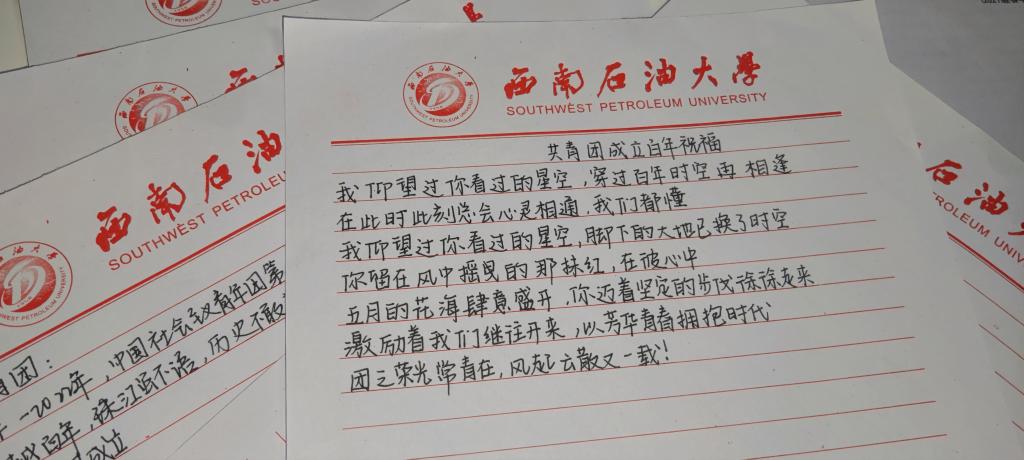 西南石油大学
SOUTHWEST PETROLEUM UNIVERSITY
共青团成立百年祝福
我仰望过你看过的星空，穿过百年时空再相逢
在此时此刻总会心灵相通，我们都懂
我仰望过你看过的星空，脚下的大地已换了时空
你留在风中摇曳的那抹红，在彼心中
五月的花海肆意盛开，你迈着坚定的步伐徐徐走来
激励着我们继往开来，以芳华青春拥抱时代
团之荣光常青在，风起云散又一载！
西南石油
SOUTHWEST PETROLEU
青团：
-2022年，中国社会主义青年团第
百年，珠江源不语，历史不
石油大
ROLEUM UNIVERSITY